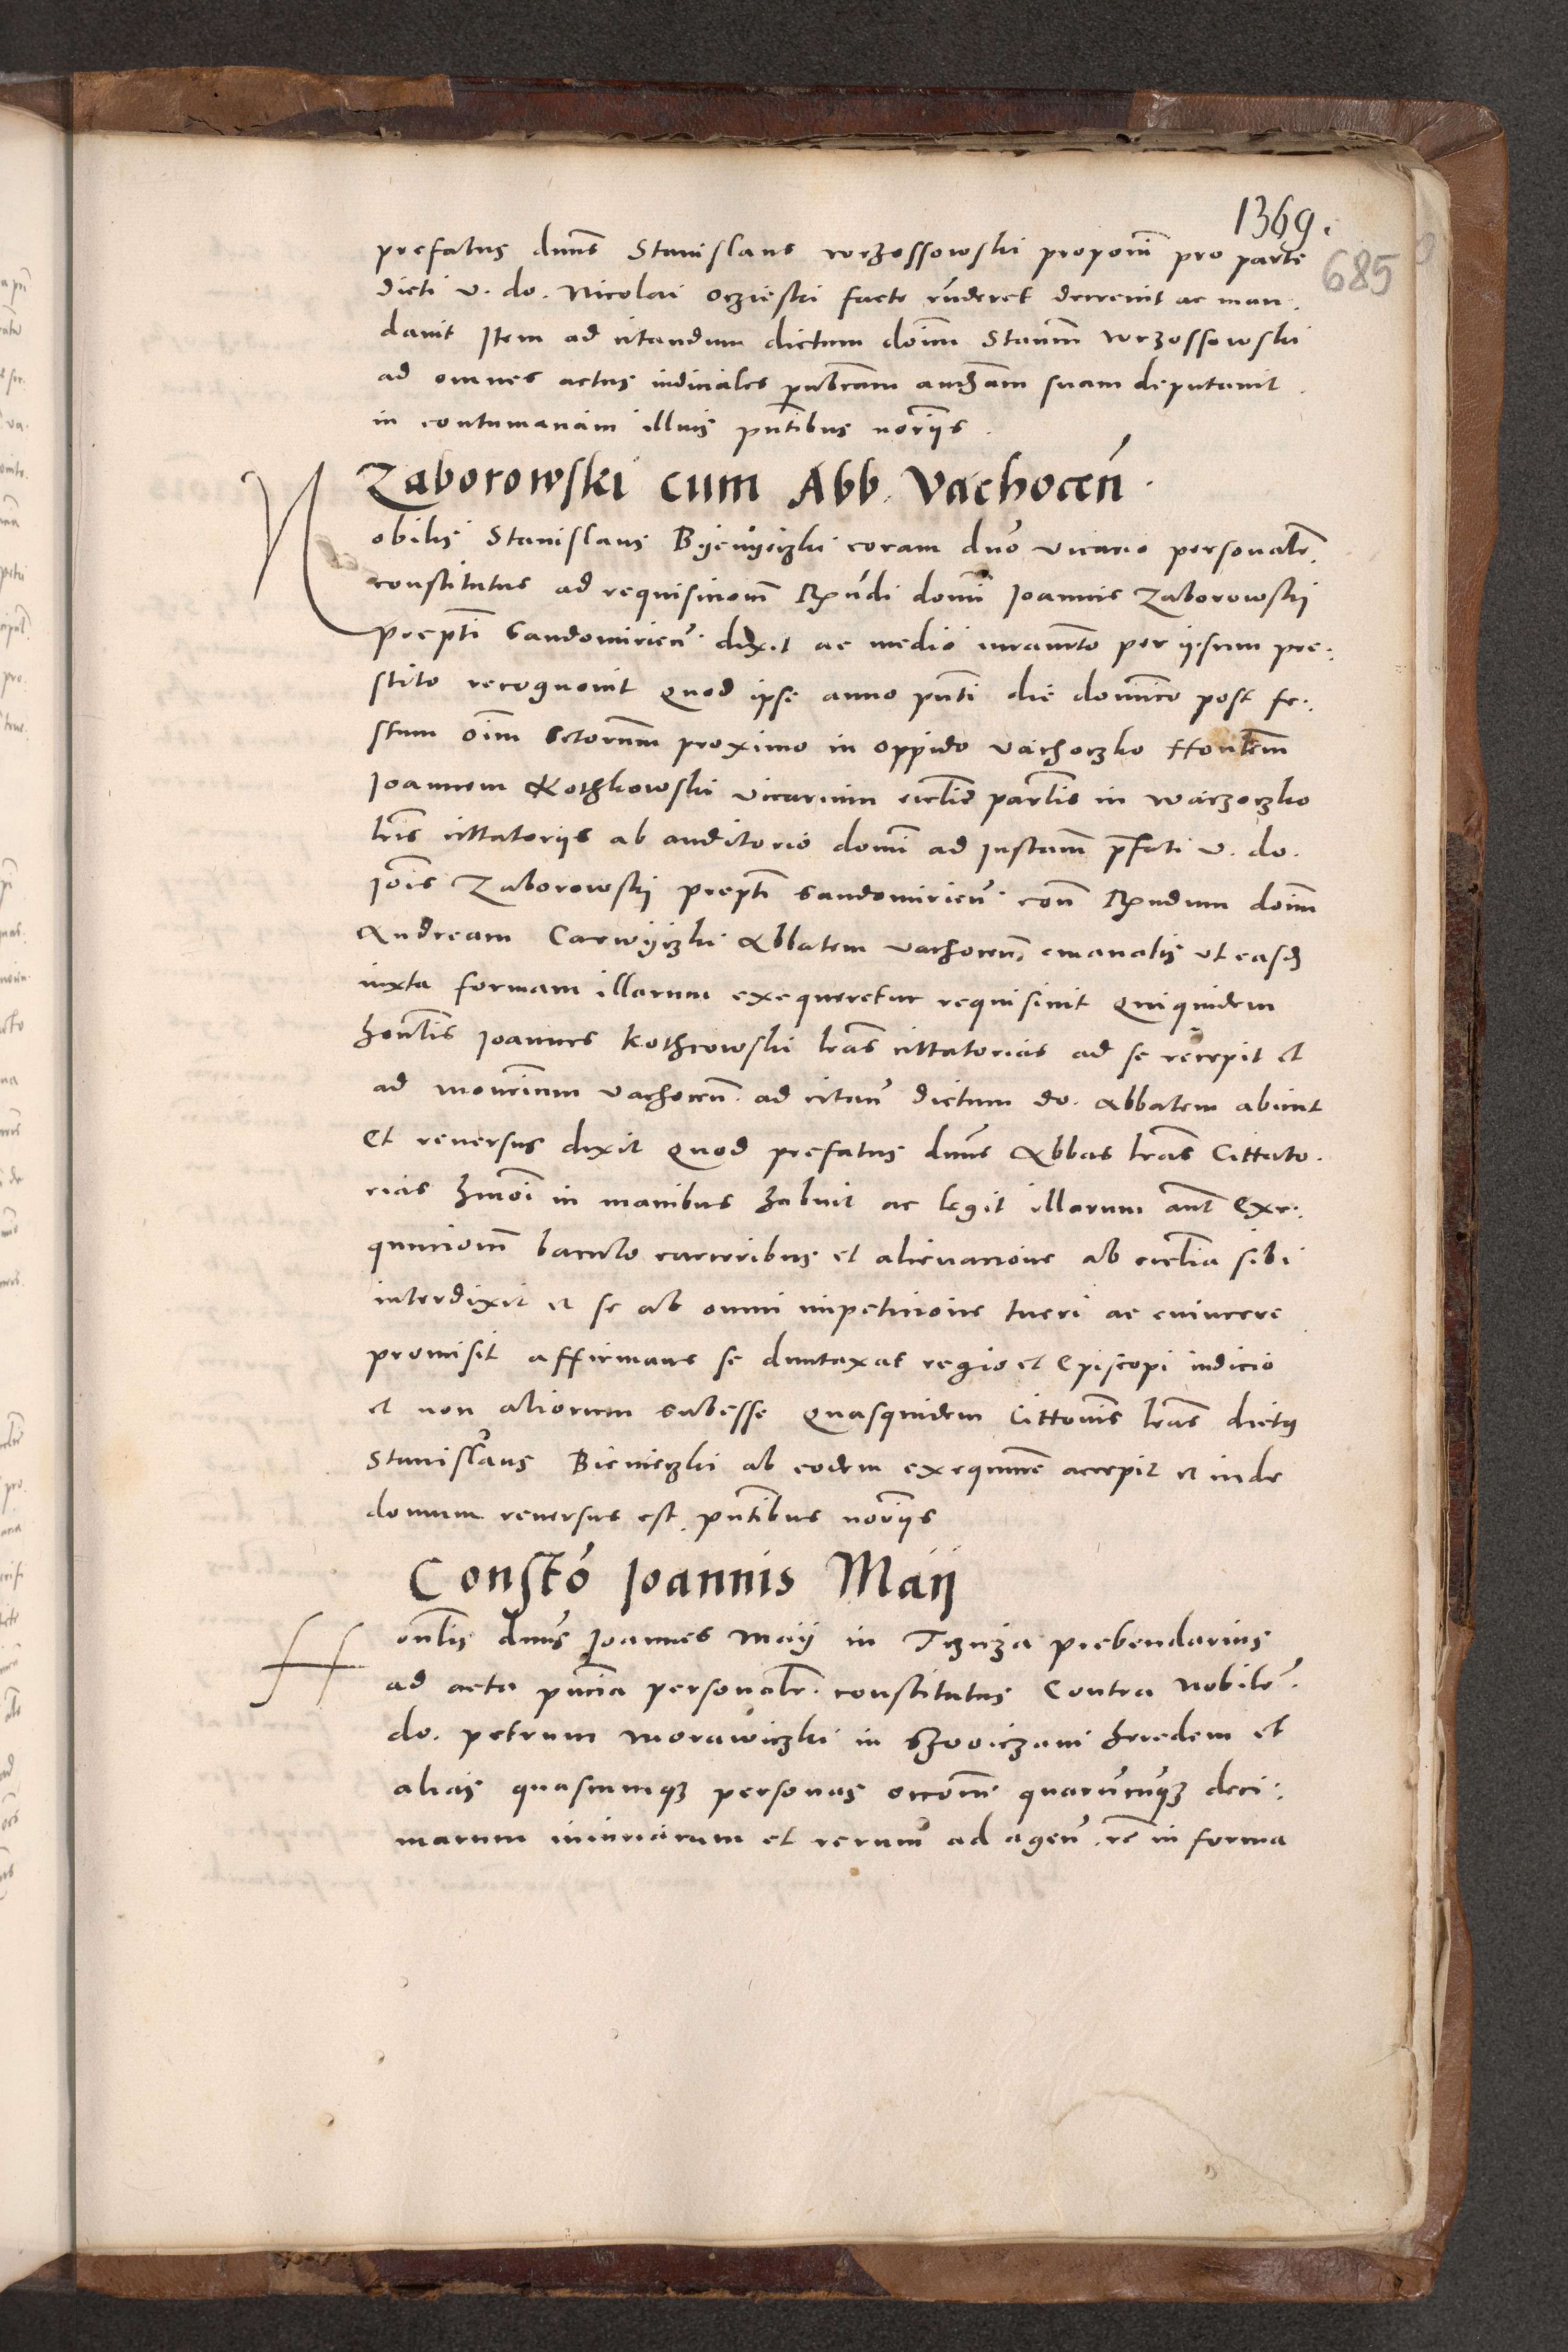 1369.
685
prefatus dnus Stanislaus wrzossowski proponi pro parte
dicti v. do. Nicolai oczieski facte rnderet decrevit ac man-
davit Item ad citandum dictum doim Stanm wrzossowski
ad omnes actus iudiciales pubcam audam suam deputavit
in contumaciam illius pntibus noriis.
Zaborowski cum Abb. Vachocen.
Nobilis Stanislaus Byenyeczki coram dno vicario personalr
constitutus ad requisicionem Rndi domi Joannis Zaborowski
prepti Sandomirien. dixit ac medio iuramto per ipsum pre-
stito recognovit quod ipse anno pnti die dominico post fe-
stum oim sctorum proximo in oppido vachoczko Hontem
Joannem Kothkowski vicarium ecclie parlis in wachoczko
lris cittatoriis ab auditorio domi ad Instam prefati v. do.
Jois Zaborowski prepti Sandomirien. con Rndum doim
Andream Carwyczki Abbatem vachocen. emanatis ut easd
iuxta formam illarum exequeretur requisivit Quiquidem
hontlis Joannes Kothcowski lras cittatorias ad se recepit et
ad moneium vachocen. ad citan dictum do. Abbatem abiit
Et reversus dixit Quod prefatus dnus Abbas lras Cittato-
rias hmoi in manibus habuit ac legit illarum aut Exe-
qucionem baculo carceribus et alienacione ab ecclia sibi
interdixit et se ab omni impeticione tueri ac evincere
promisit affirmans se duntaxat regio et Episcopi iudicio
et non aliorum subesse Quasquidem Cittonis lras dictus
Stanislaus Bieneczki ab eodem exequnte accepit et inde
domum reversus est. pntibus noriis
Consto Joannis Maij
Honlis dnus Joannes Maij in Tczicza prebendarius
ad acta pncia personalr. constitutus Contra Nobile.
do. petrum morawiczki in heredem et
alias quascumque personas occone quarucuque deci-
marum iniuriarum et rerum ad agen. re in forma